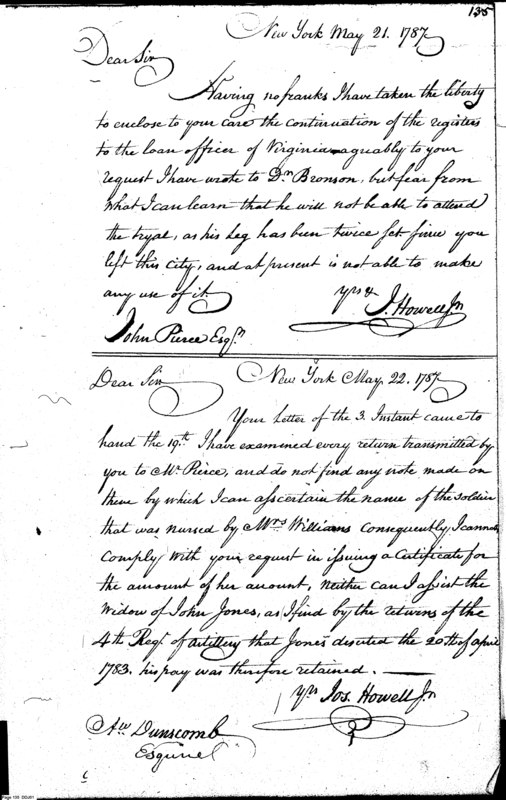 135
New York May 21. 1787
Dear Sir
Having no franks I have taken the liberty
to enclose to your care the continuation of the registers
to the loan officer of Virginia aguably to your
request I have wrote to Dr. Bronson, but fear from
what I can learn that he will not be able to attend
the tryal, as his Leg has been twice set since you
left this city, and at present is not able to make
any use of it.
yrs &
J. Howell Jr
John Pierce Esqr.
Dear Sir New York May, 22. 1787
Your Letter of the 3. Instant came to
hand the 19th. I have examined every return transmitted by
you to Mr. Pierce, and do not find any note made on
them by which I can asscertain the name of the soldier
that was nursed by Mrs Williams Consequently I cannot
Comply with your request in issuing a Certificate for
the amount of her amount, neither can I assist the
Widow of John Jones, as I find by the returns of the
4th Regt. of artillery that Jones deserted the 20th of April
1783. his pay was therefore retained.
Yrs Jos. Howell Jr
Aw Dunscomb
Esquire
Page 135 DDJ01